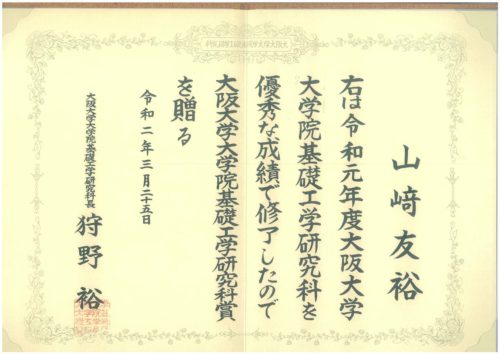 山﨑友裕
右は令和元年度大阪大学
大学院基礎工学研究科を
優秀な成績で修了したので
大阪大学大学院基礎工学研究科賞
を贈る
令和二年三月二十五日
大阪大学大学院基礎工学研究科長
狩野裕